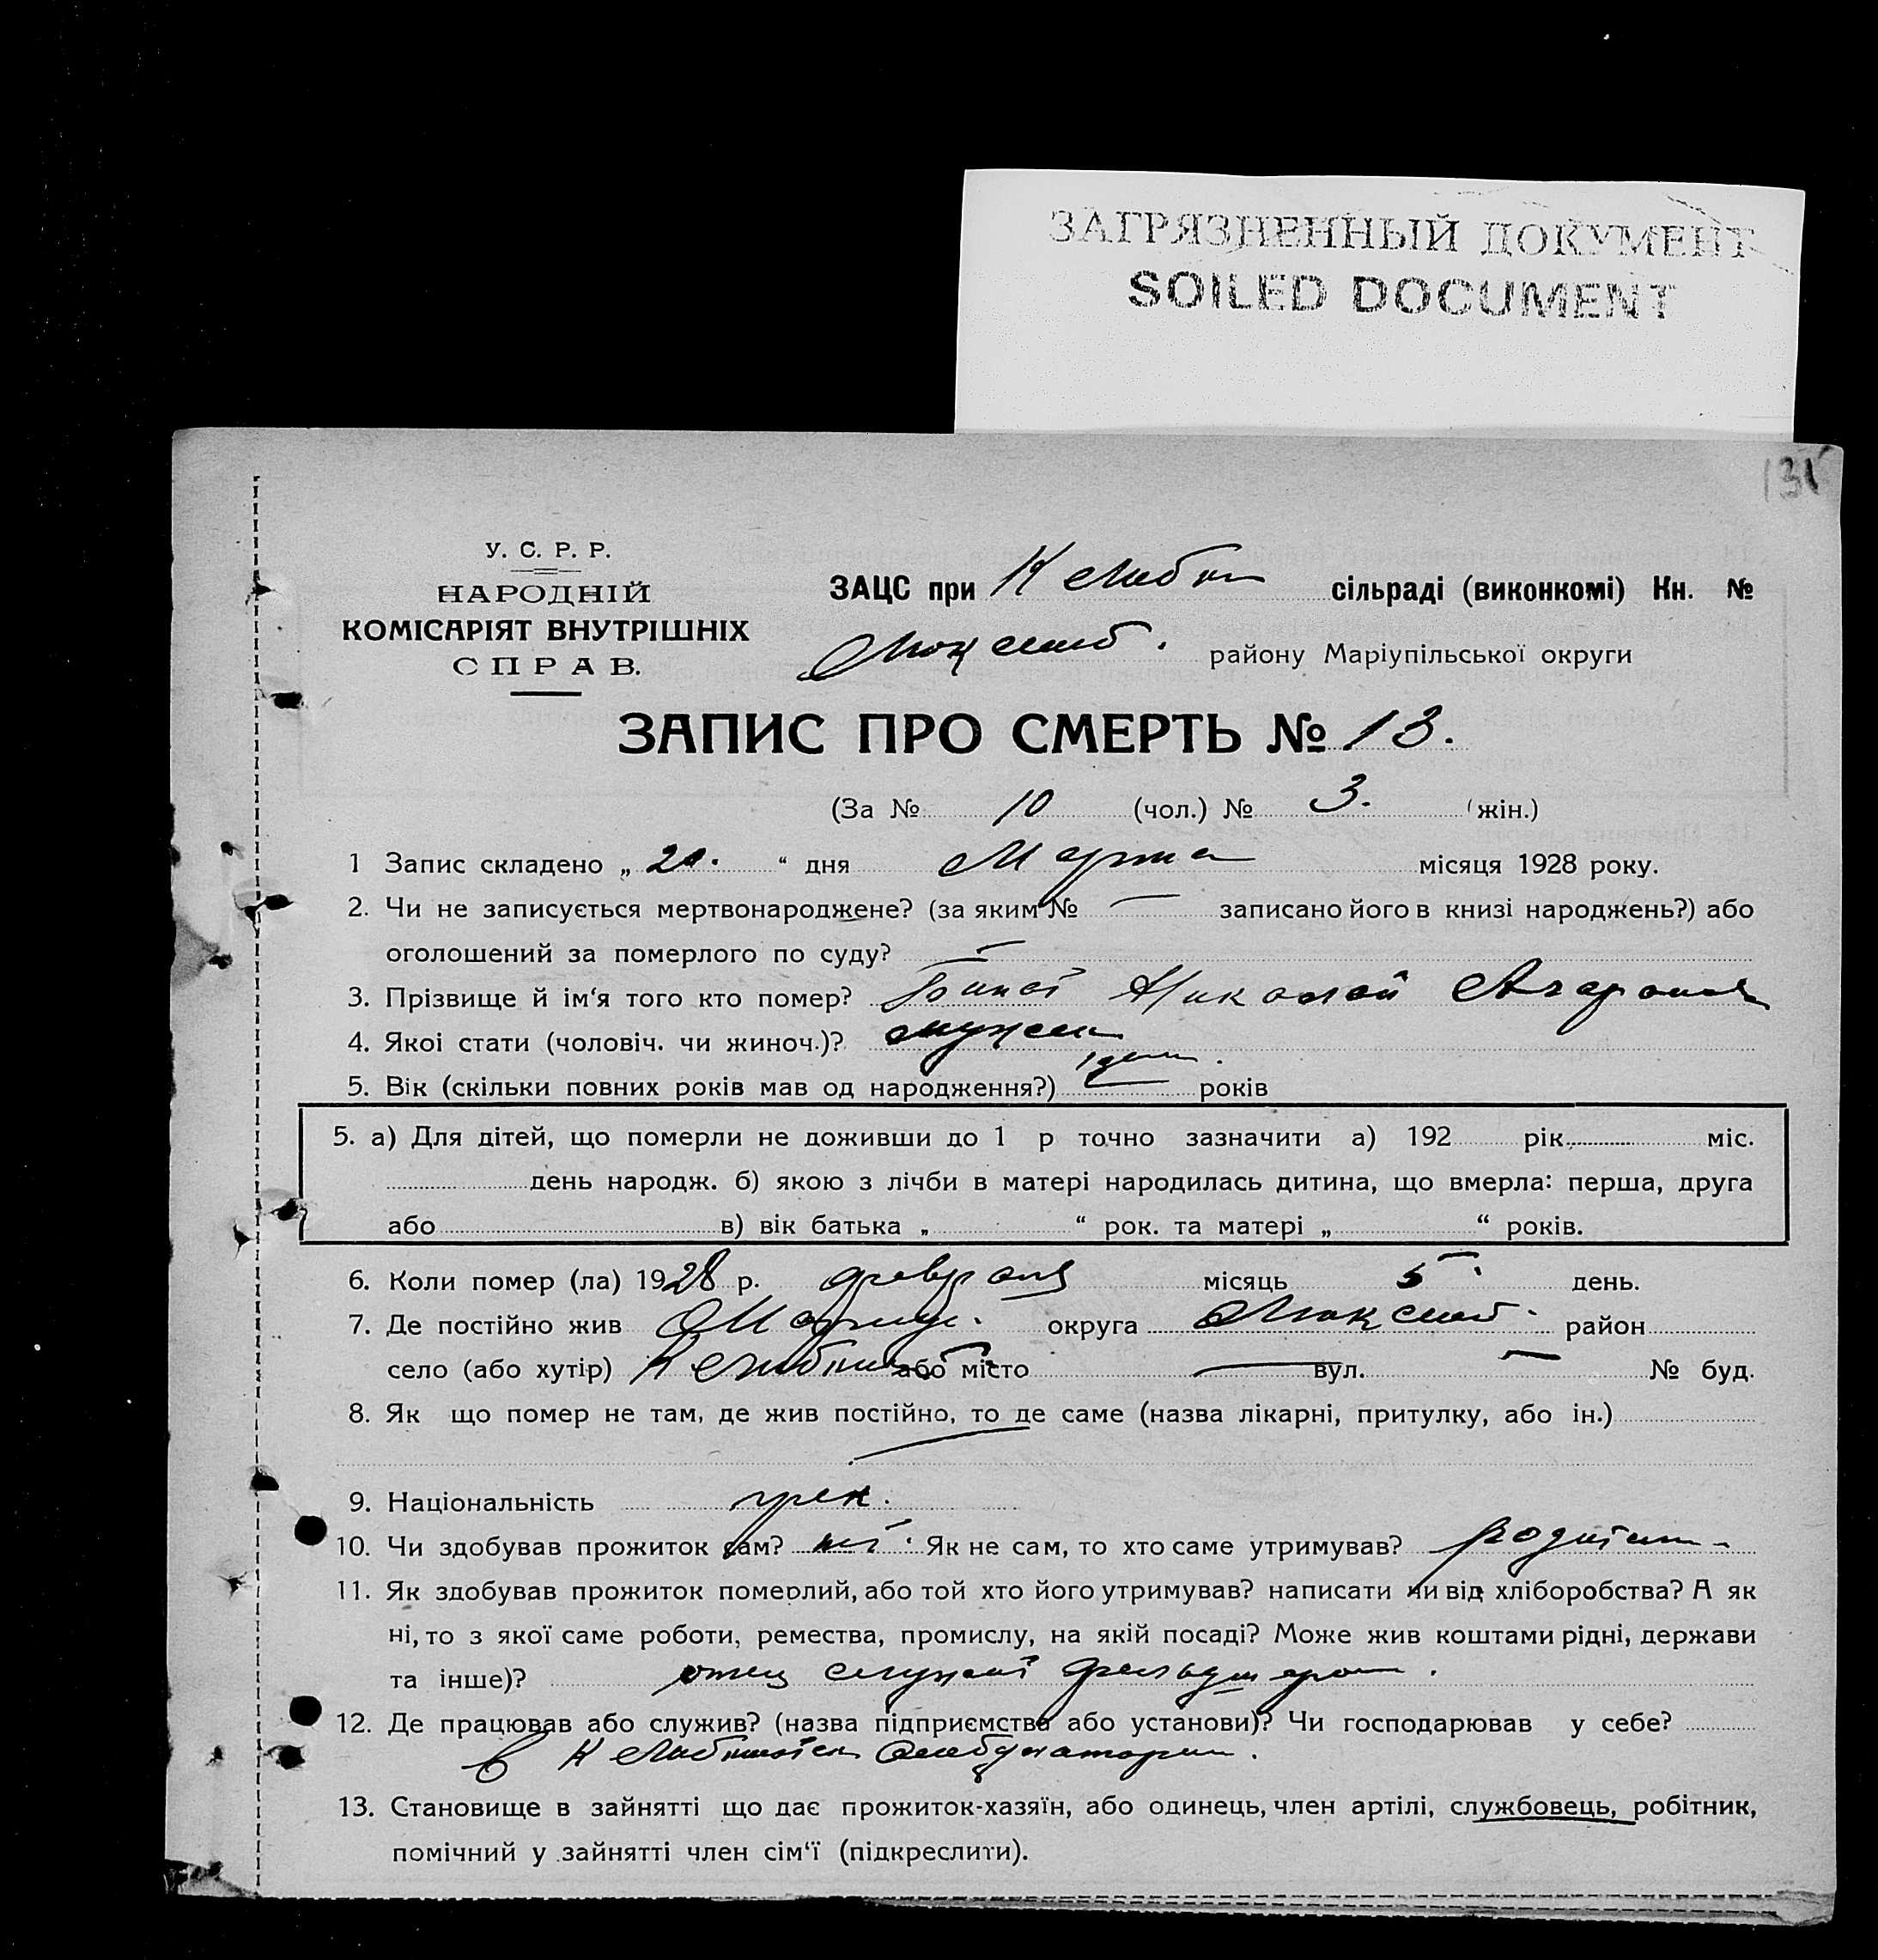 ЗАГРЯЗНЕННЫЙ ДОКУМЕНТ
SOILED DOCUMENT
131
У. С. Р. Р.
НАРОДНІЙ
КОМІСАРІЯТ ВНУТРІШНІХ
СПРАВ.
ЗАЦС при сільраді (виконкомі) Кн. №
району Маріупільської округи
ЗАПИС ПРО СМЕРТЬ № 13.
(За № 10 (чол.) № 3. (жін.)
1 Запис складено „ 20. “ дня Марта місяця 1928 року.
2. Чи не записується мертвонароджене? (за яким № — записано його в книзі народжень?) або
оголошений за померлого по суду? —
3. Прізвище й ім‘я того кто помер? Николай
4. Якоі стати (чоловіч. чи жиноч.)? мужск
5. Вік (скільки повних років мав од народження?) років
5. а) Для дітей, що померли не доживши до 1 р точно зазначити а) 192 рік міс.
день народж. б) якою з лічби в матері народилась дитина, що вмерла: перша, друга
або в) вік батька „ “ рок. та матері „ “ років.
6. Коли помер (ла) 1928 р. февраля місяць 5 день.
7. Де постійно жив Мариуп. округа район
село (або хутір) або місто — вул. — № буд.
8. Як що помер не там, де жив постійно, то де саме (назва лікарні, притулку, або ін.)
—
9. Національність грек.
10. Чи здобував прожиток сам? ні. Як не сам, то хто саме утримував? родители
11. Як здобував прожиток померлий, або той хто його утримував? написати чи від хліборобства? А як
ні, то з якої саме роботи, ремества, промислу, на якій посаді? Може жив коштами рідні, держави
та інше)? отец служит фельдшером.
12. Де працював або служив? (назва підприємства або установи)? Чи господарював у себе?
в амбулатории.
13. Становище в зайнятті що дає прожиток-хазяїн, або одинець, член артілі, службовець, робітник,
помічний у зайнятті член сім‘ї (підкреслити).